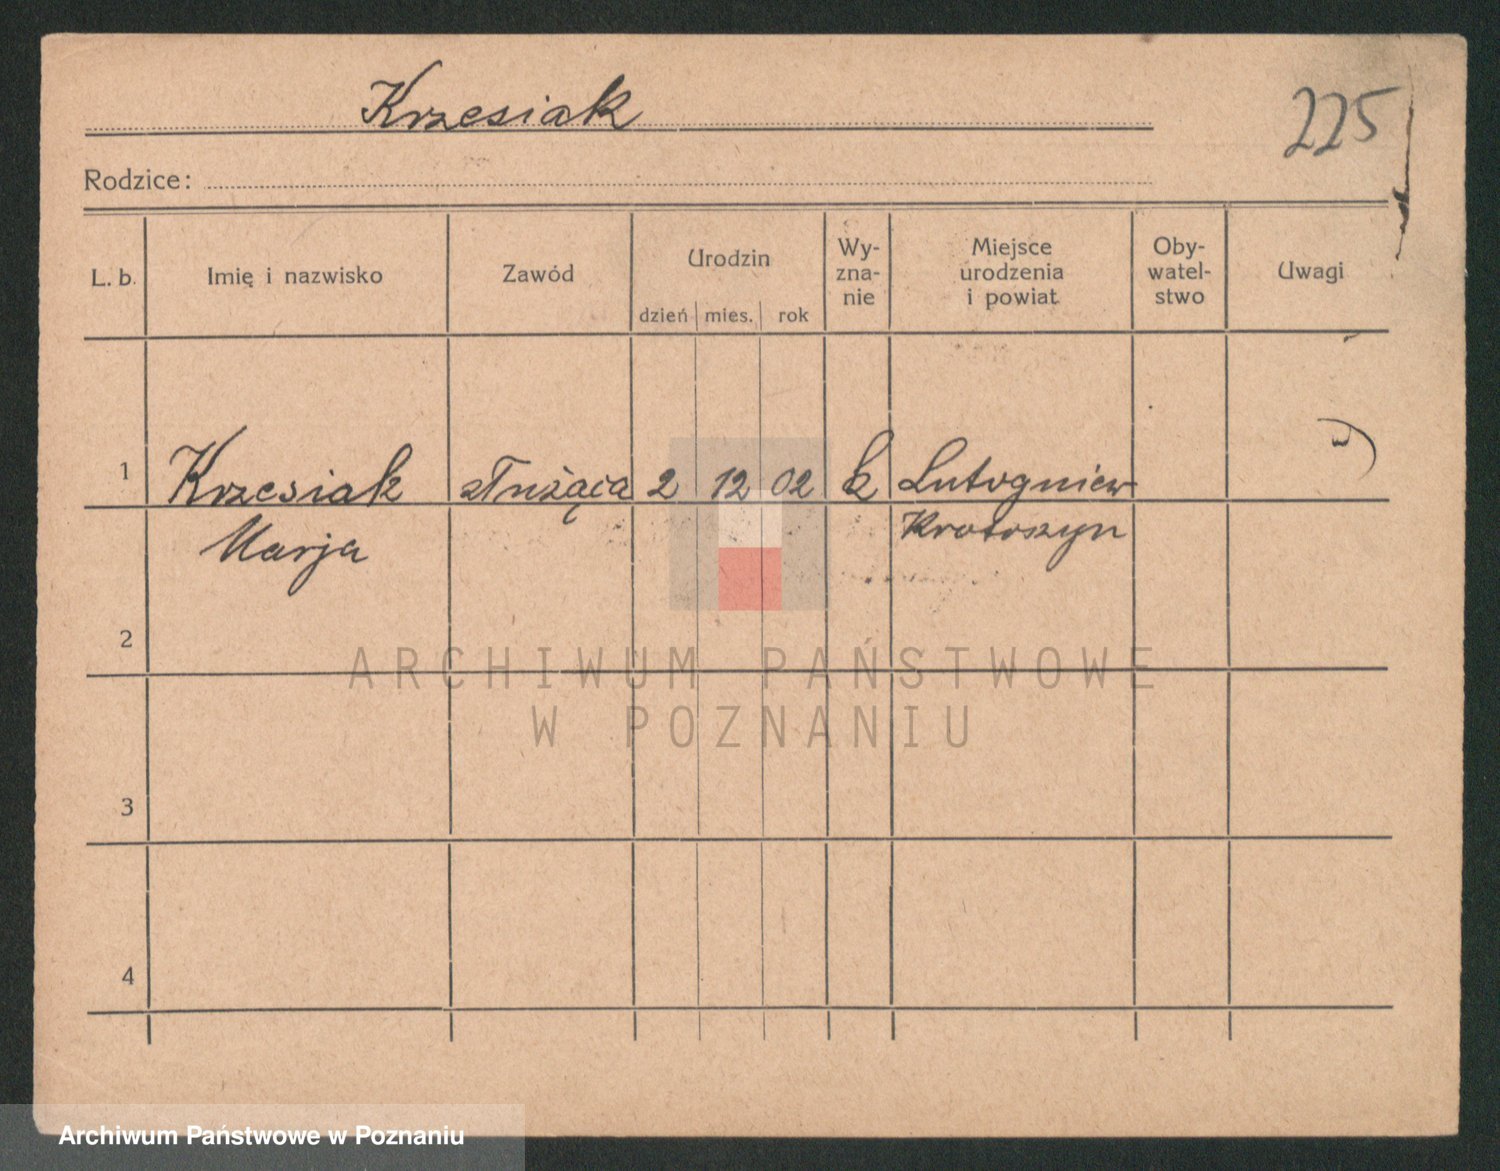 Krzesiak
225
Rodzice:
L. b. Imię i nazwisko Zawód Urodzin dzień mies. rok Wy-zna-nie Miejsce urodzenia i powiat Oby-watel-stwo Uwagi
1 Krzesiak służąca 2 12 02 k Lutogniew
Marja Krotoszyn
2
ARCHIWUM PAŃSTWOWE
W POZNANIU
3
4
Archiwum Państwowe w Poznaniu